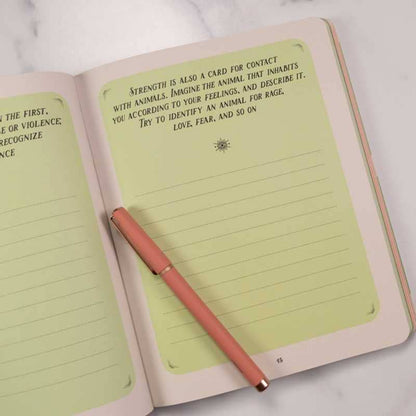 N THE FIRST,
SE OR VIOLENCE;
RECOGNIZE
NCE
STRENGTH IS ALSO A CARD FOR CONTACT
WITH ANIMALS. IMAGINE THE ANIMAL THAT INHABITS
YOU ACCORDING TO YOUR FEELINGS, AND DESCRIBE IT.
TRY TO IDENTIFY AN ANIMAL FOR RAGE,
LOVE, FEAR, AND SO ON